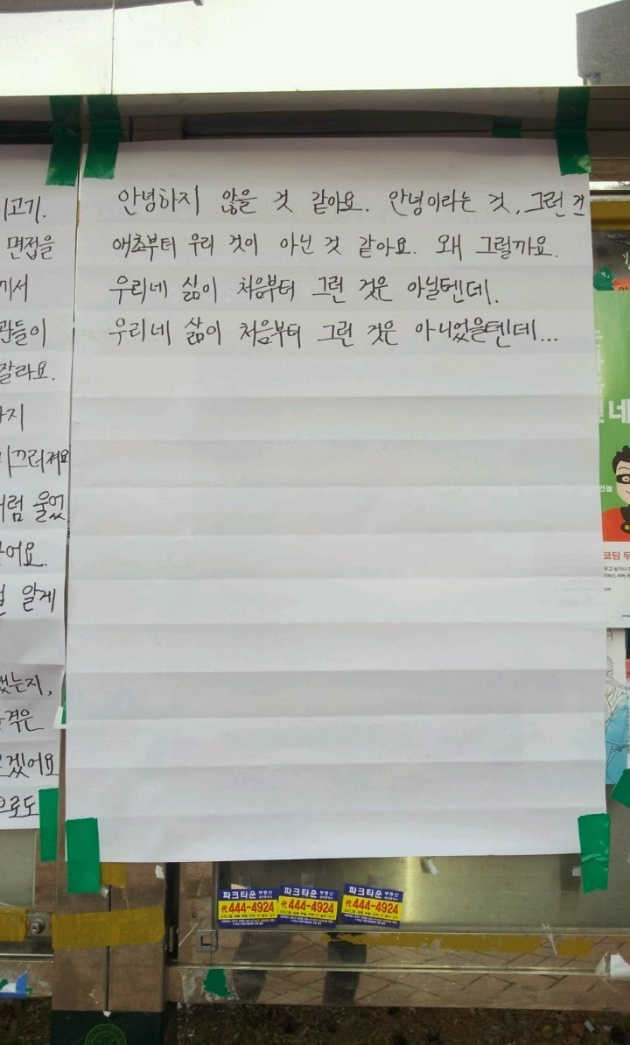 이고기.
면접을
께서
관들이
잘라요.
지
미끄러져요
럼 울었
어요.
알게
는지,
격은
겠어요
으로도
안녕하지 않을 것 같아요. 안녕이라는 것, 그런 건
애초부터 우리 것이 아닌 것 같아요. 왜 그럴까요.
우리네 삶이 처음부터 그런 것은 아닐텐데.
우리네 삶이 처음부터 그런 것은 아니었을텐데...
네
코딩 두
파크타운 부동산
444-4924
파크타운 부동산
444-4924
파크타운 부동산
444-4924